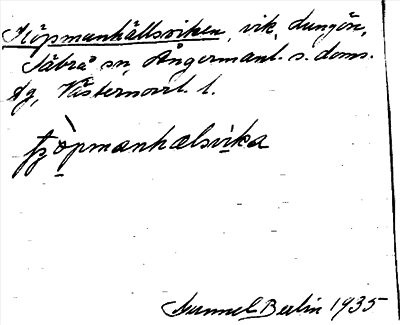 Köpmanhällsviken, vik, Lungön,
Säbrå sn, Ångermanl. s. doms.
åg, Västernorrl. l.
tjòpmanhalsvika
Gunnel Berlin 1935